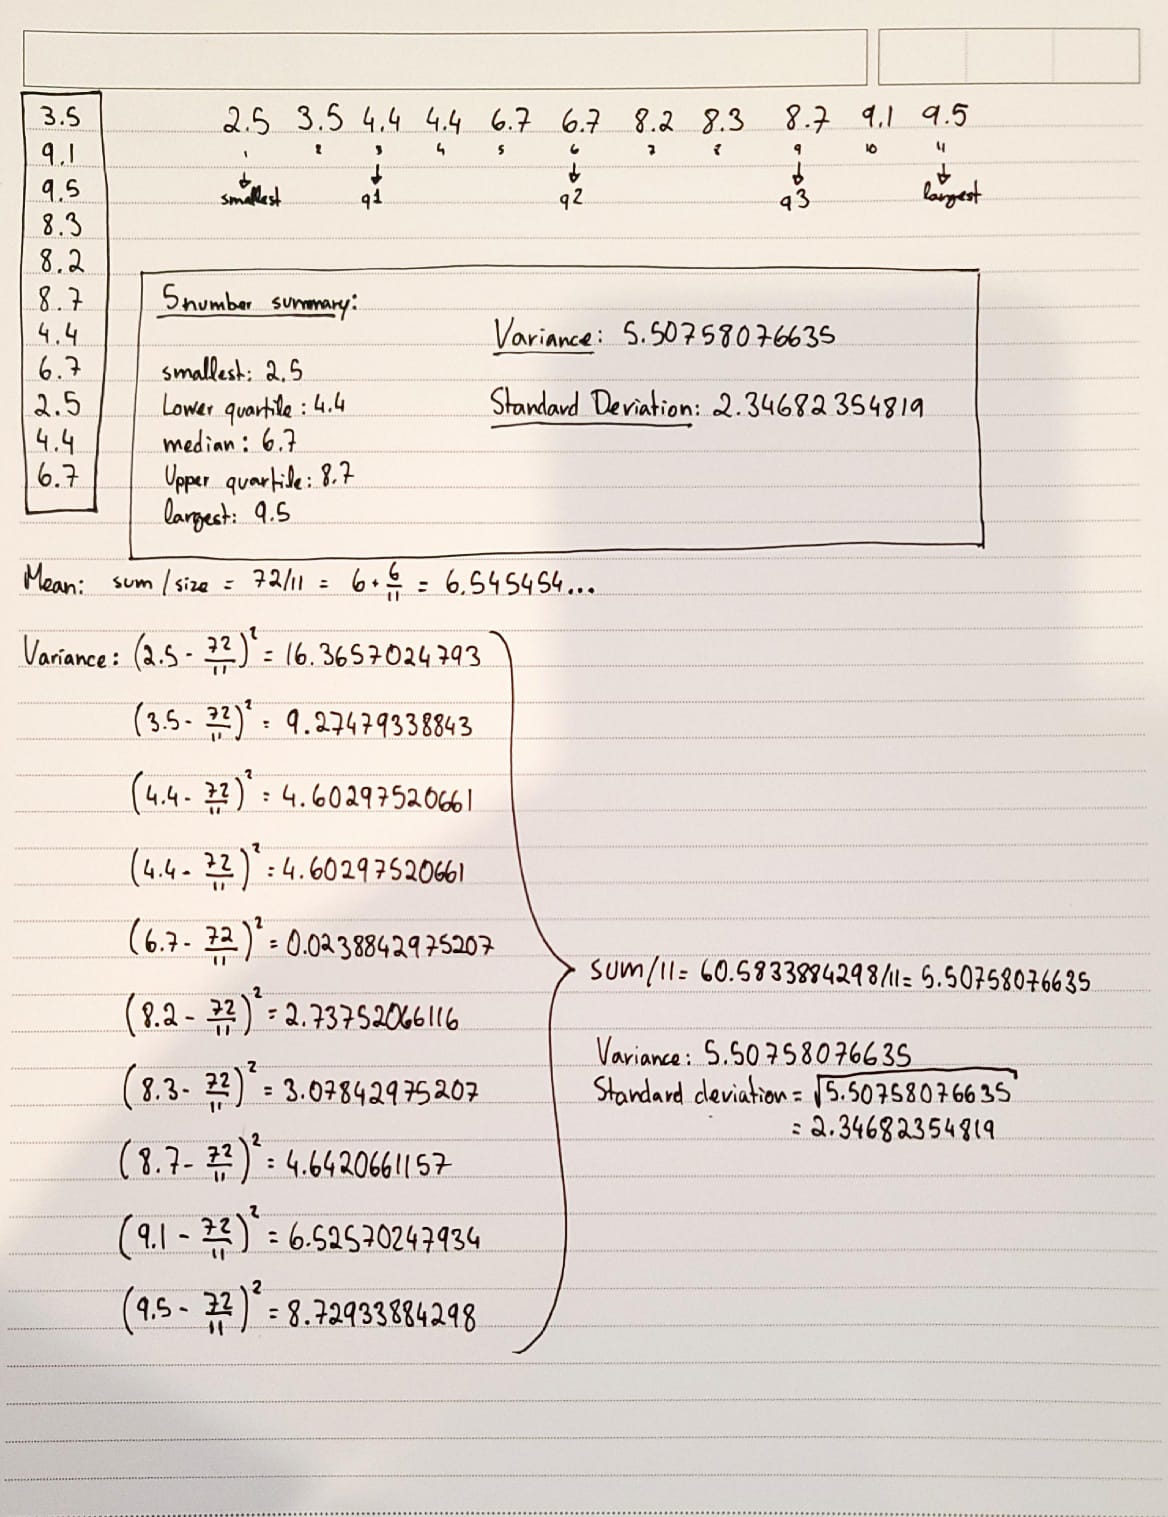 3.5
9.1
9.5
8.3
8.2
8.7
4.4
6.7
2.5
4.4
6.7
2.5 3.5 4.4 4.4 6.7 6.7 8.2 8.3 8.7 9.1 9.5
1 2 3 4 5 6 7 8 9 10 11
smallest q1 q2 q3 largest
5 number summary:
smallest: 2.5
Lower quartile: 4.4
median: 6.7
Upper quartile: 8.7
largest: 9.5
Variance: 5.50758076635
Standard Deviation: 2.34682354819
Mean: sum / size = 72/11 = 6 + 6/11 = 6.545454...
Variance: (2.5 - 72/11)² = 16.3657024793
(3.5 - 72/11)² = 9.27479338843
(4.4 - 72/11)² = 4.60297520661
(4.4 - 72/11)² = 4.60297520661
(6.7 - 72/11)² = 0.0238842975207
(8.2 - 72/11)² = 2.73752066116
(8.3 - 72/11)² = 3.07842975207
(8.7 - 72/11)² = 4.6420661157
(9.1 - 72/11)² = 6.52570247934
(9.5 - 72/11)² = 8.72933884298
sum/11 = 60.5833884298/11 = 5.50758076635
Variance: 5.50758076635
Standard deviation = √5.50758076635
= 2.34682354819